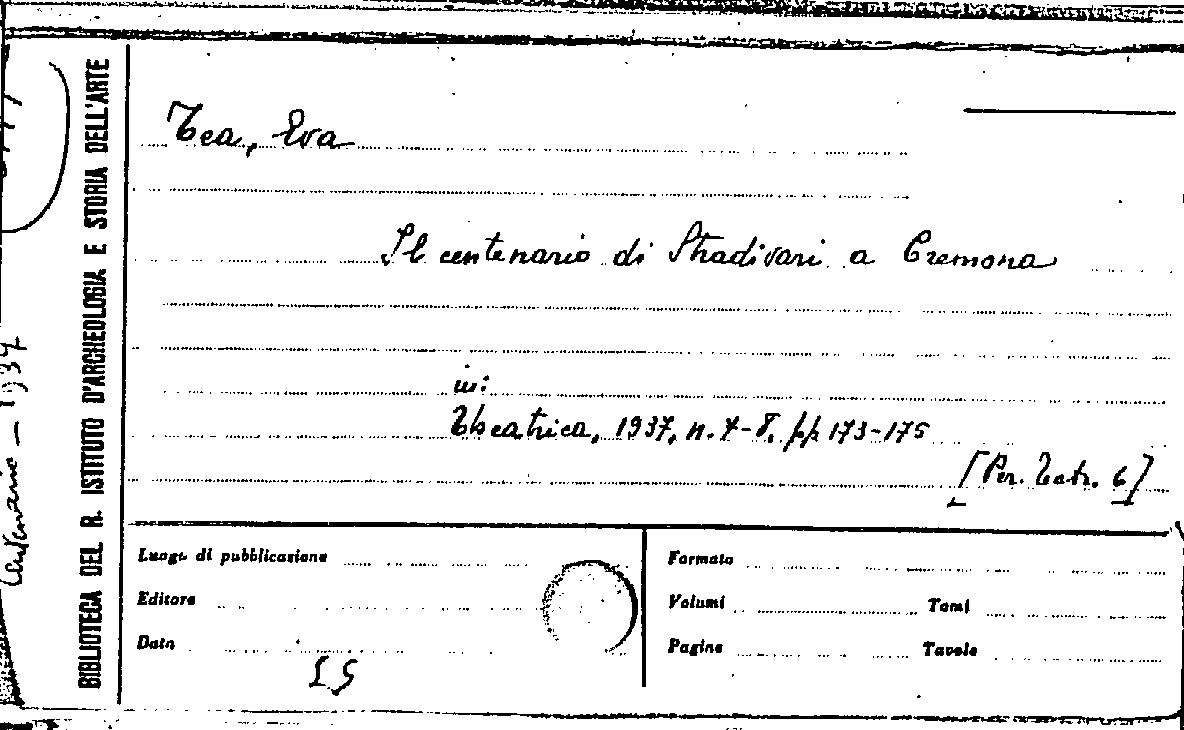 Tea, Eva
Il centenario di Stradivari a Cremona
in:
Theatrica, 1937, n. 7-8, pp 173-175
[Per. Teatr. 6]
BIBLIOTECA DEL R. ISTITUTO D'ARCHEOLOGIA E STORIA DELL'ARTE
Centenario – 1937
Luogo di pubblicazione
Editore
Data
Formato
Volumi Tomi
Pagine Tavole